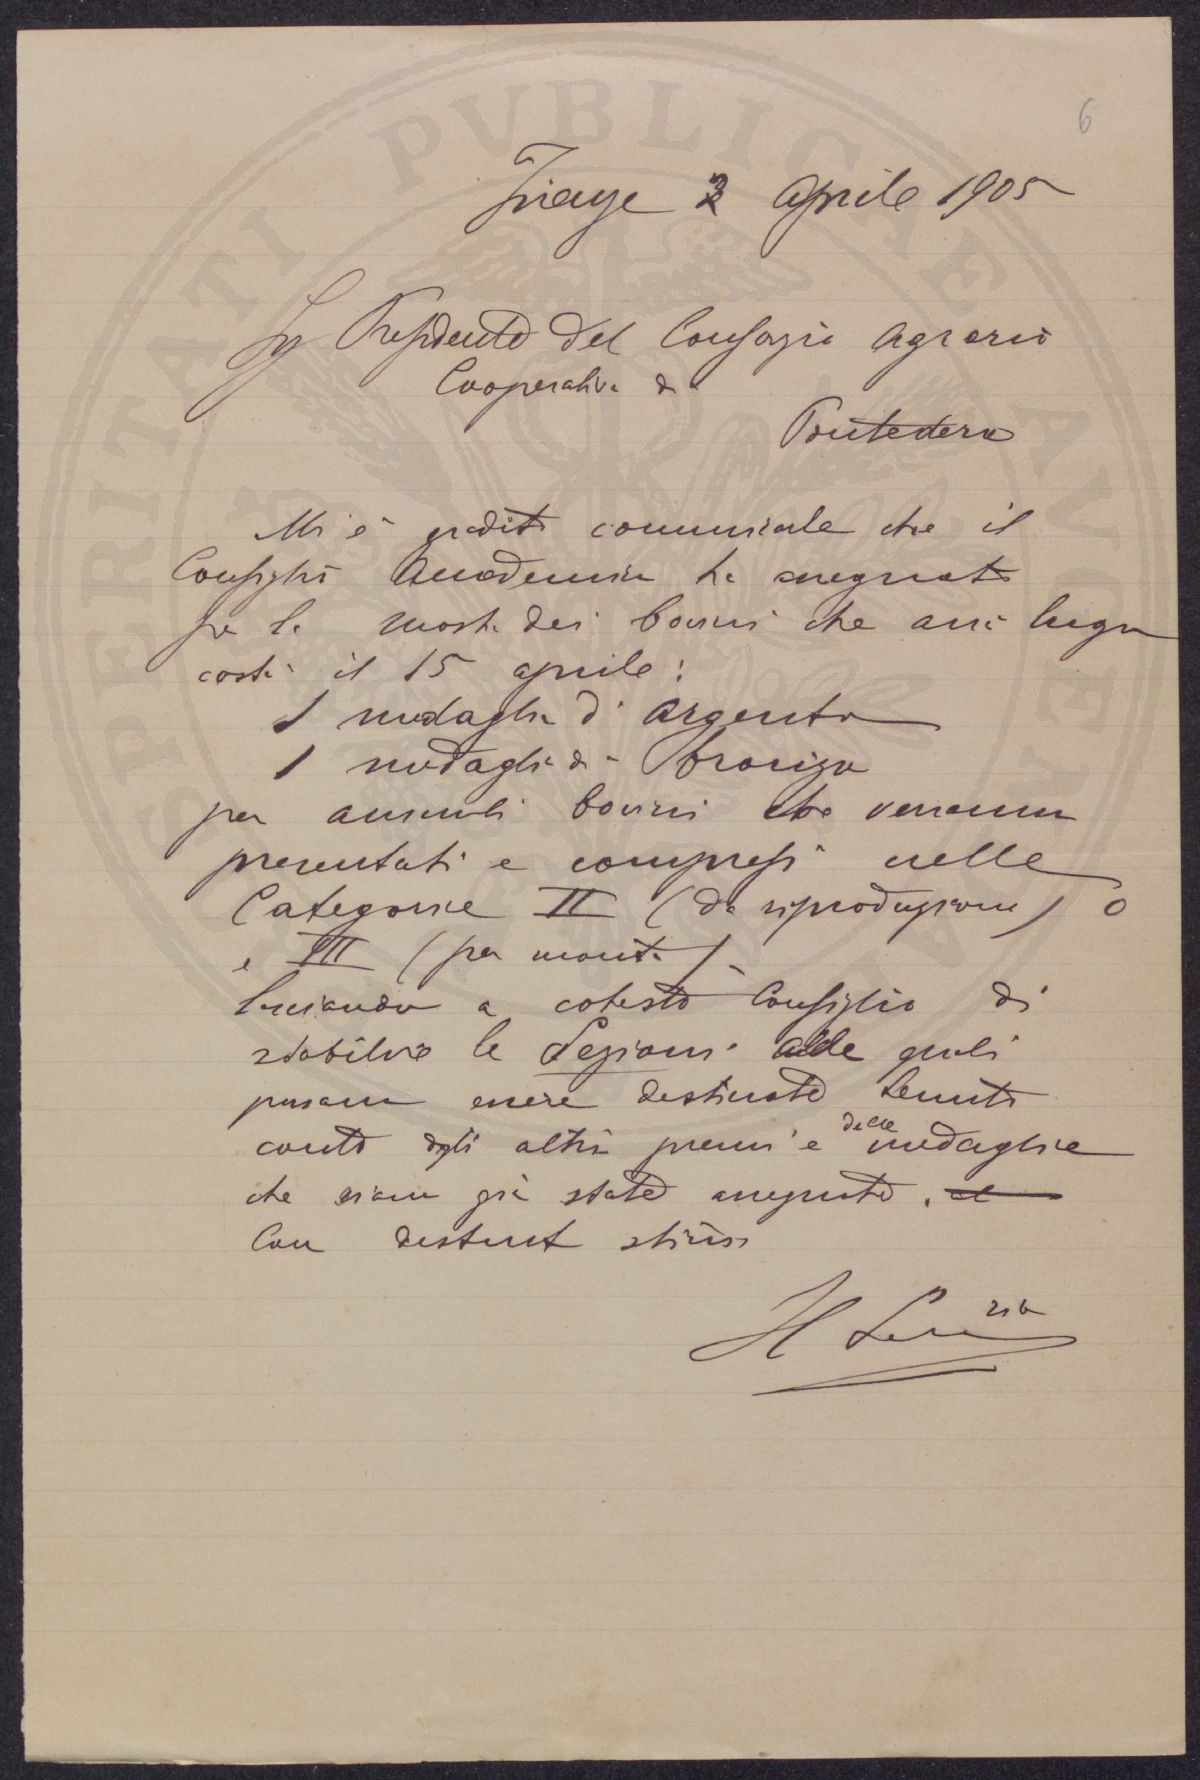 6
Firenze 2 Aprile 1905
Sig Presidente del Consorzio Agrario
Cooperativo di
Pontedera
Mi è gradito comunicarle che il
Consiglio Accademico ha assegnato
per la mostra dei bovini che avrà luogo
costì il 15 aprile:
1 medaglia d'Argento
1 medaglia di Bronzo
per animali bovini che verranno
presentati e compresi nelle
Categorie II (da riproduzione) o
e III (per monta).
lasciando a cotesto Consiglio di
stabilire le Sezioni alle quali
possano essere destinate tenuto
conto degli altri premi e delle medaglie
che siano già state assegnate.
Con distinta stima
Il